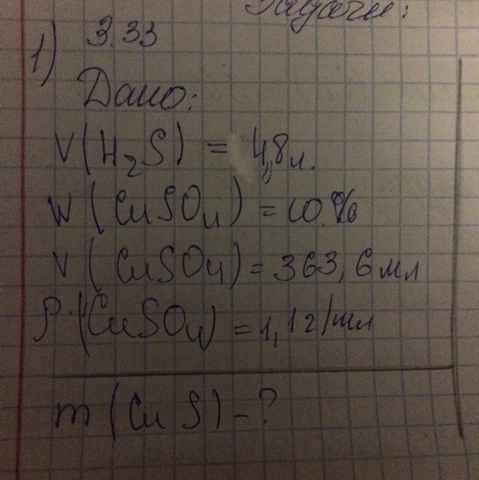 Задачи:
1) 3.33
Дано:
V(H₂S) = 4,8л.
W(CuSO₄) = 10%
V(CuSO₄) = 363,6мл
ρ(CuSO₄) = 1,1г/мл
m(CuS) - ?